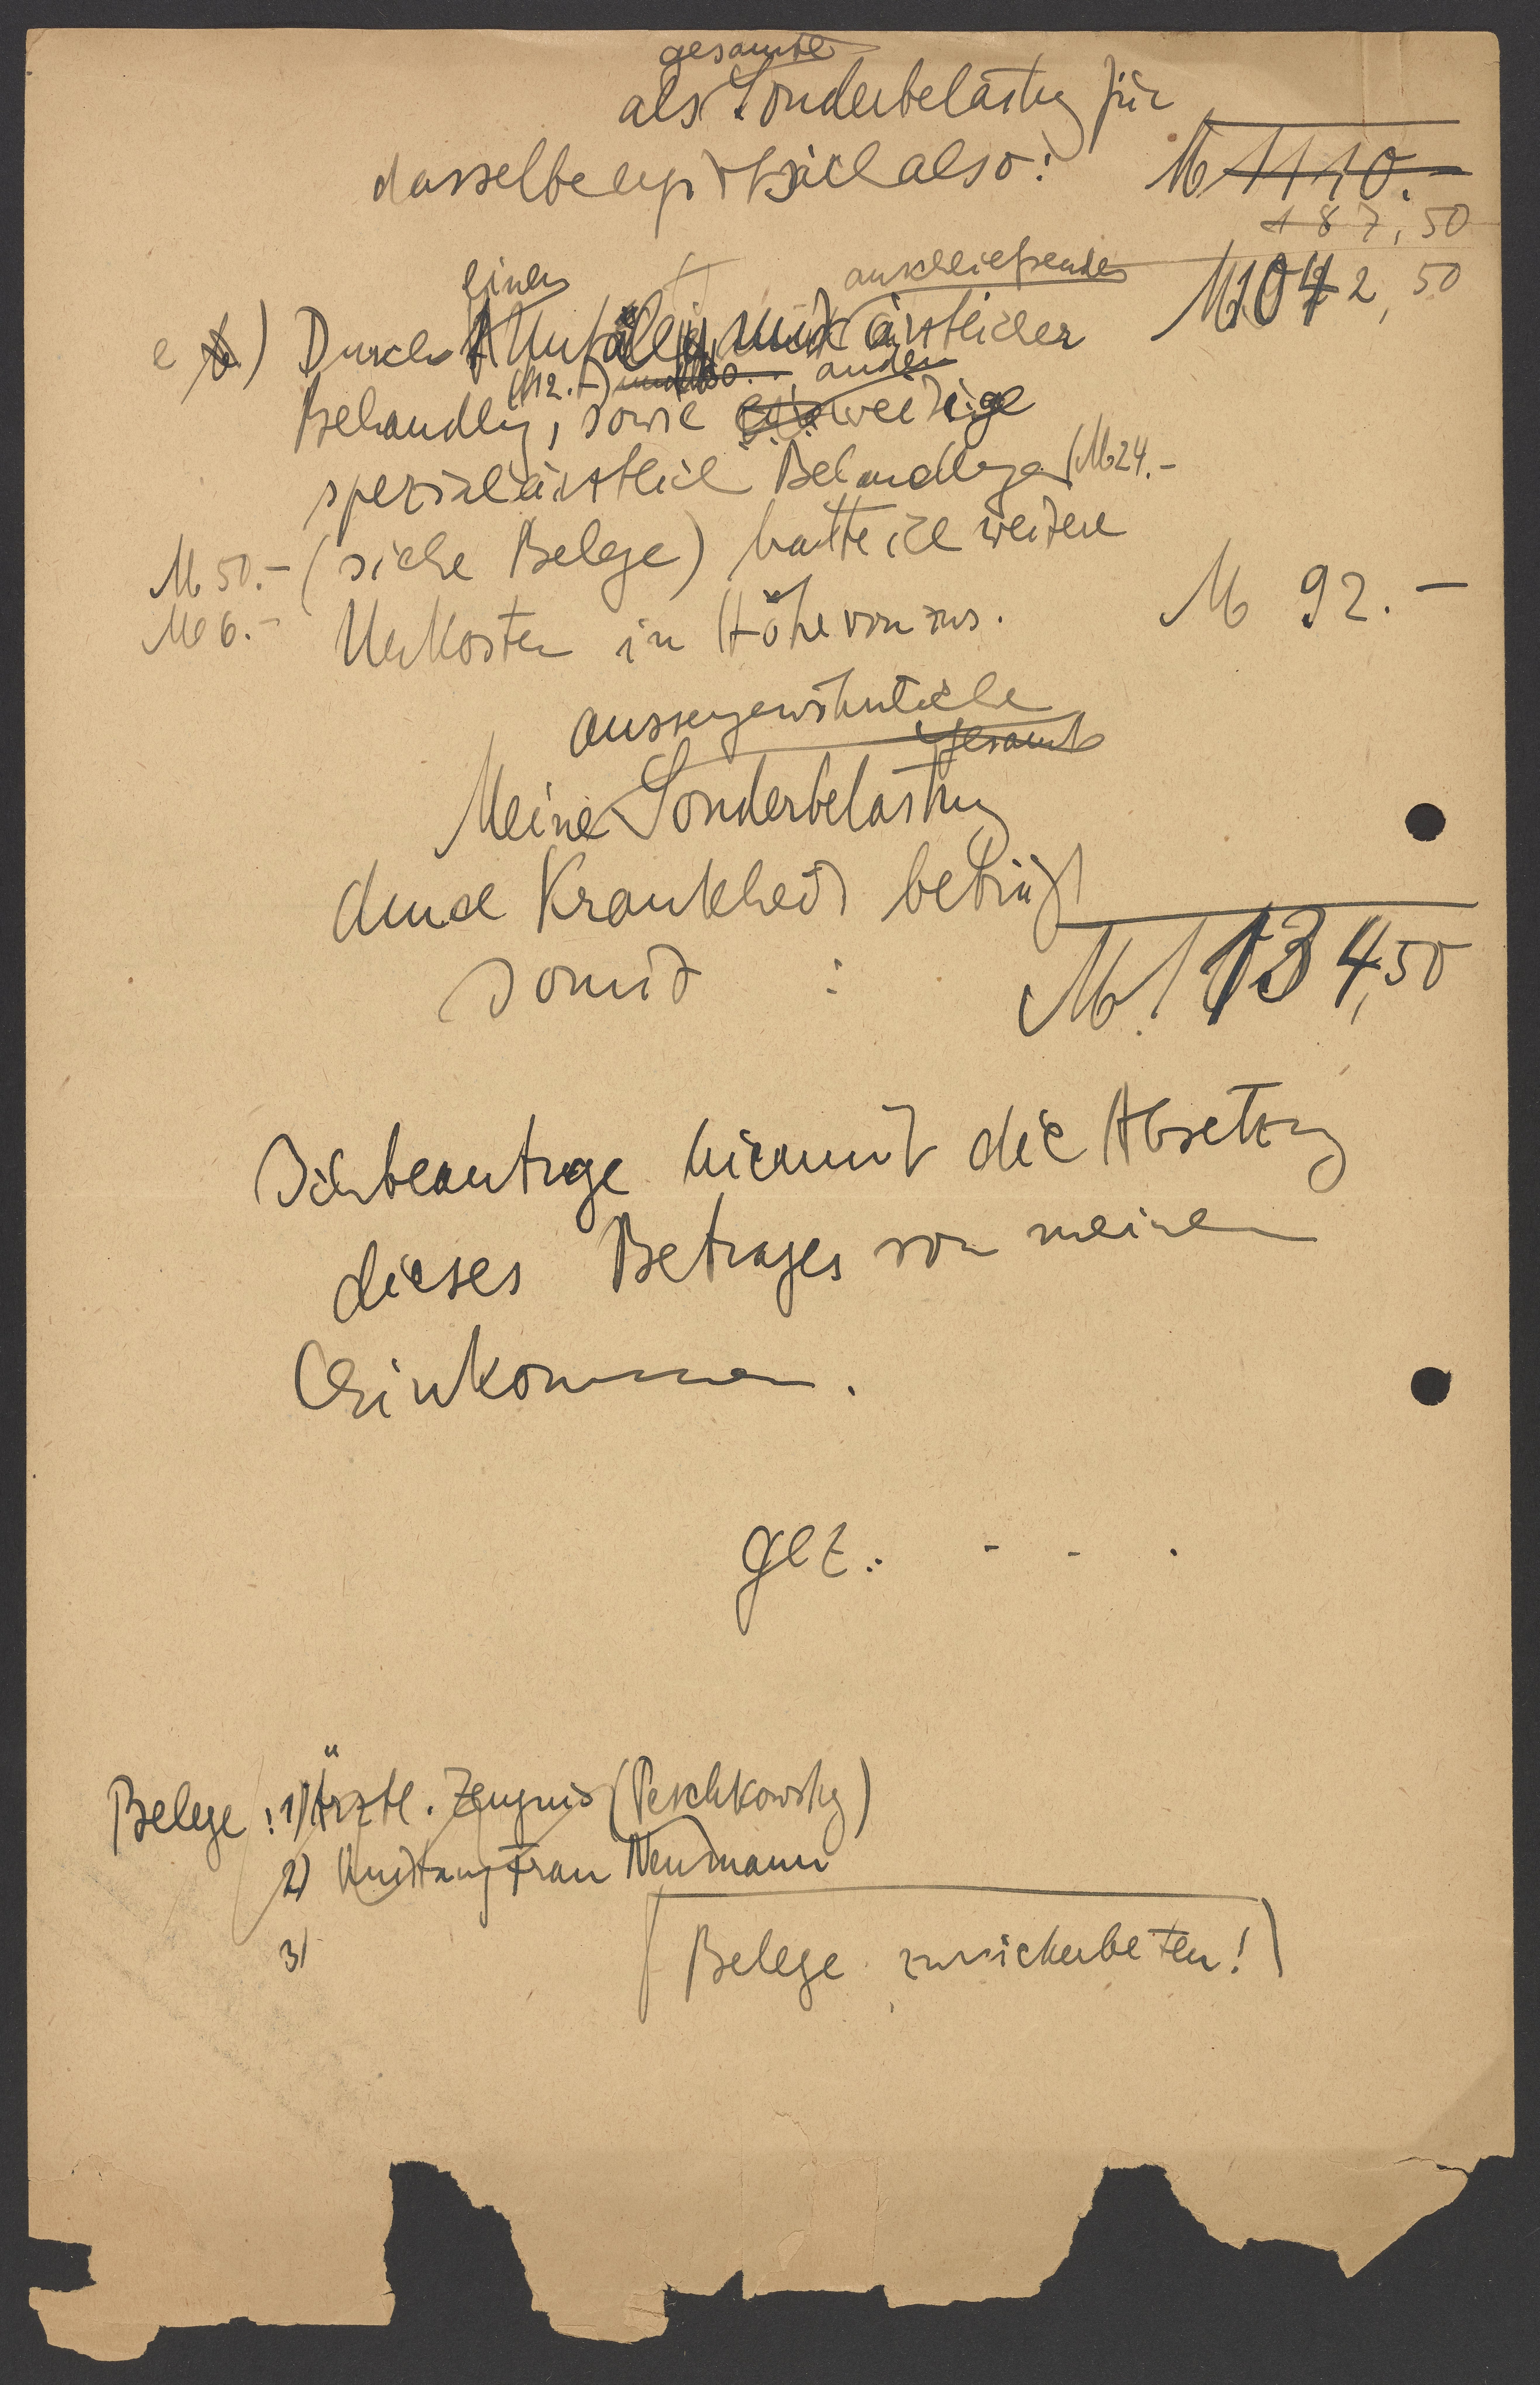 gesamte
als Sonderbelastg für
dasselbe ergibt sich also: M 1110.-
187,50
einen anschließender M 1042,50
e) Durch Unfall mit ärztlicher
(M12.-) ander
Behandlg, sowie weitige
spezialärztliche Behandlungen (M 24.-
M 50.- (siehe Belege) hatte ich weitere
M 6.- Unkosten in Höhe von zus. M 92.-
aussergewöhnliche
gesamt
Meine Sonderbelastung
durch Krankheit beträgt
somit : M. 1134,50
Ich beantrage hiermit die Absetzung
dieses Betrages von meinem
Einkommen.
gez.: - - .
Belege: 1) Ärztl. Zeugnis (Peschkowsky)
2) Quittung Frau Neumann
3)
Belege zurückerbeten!